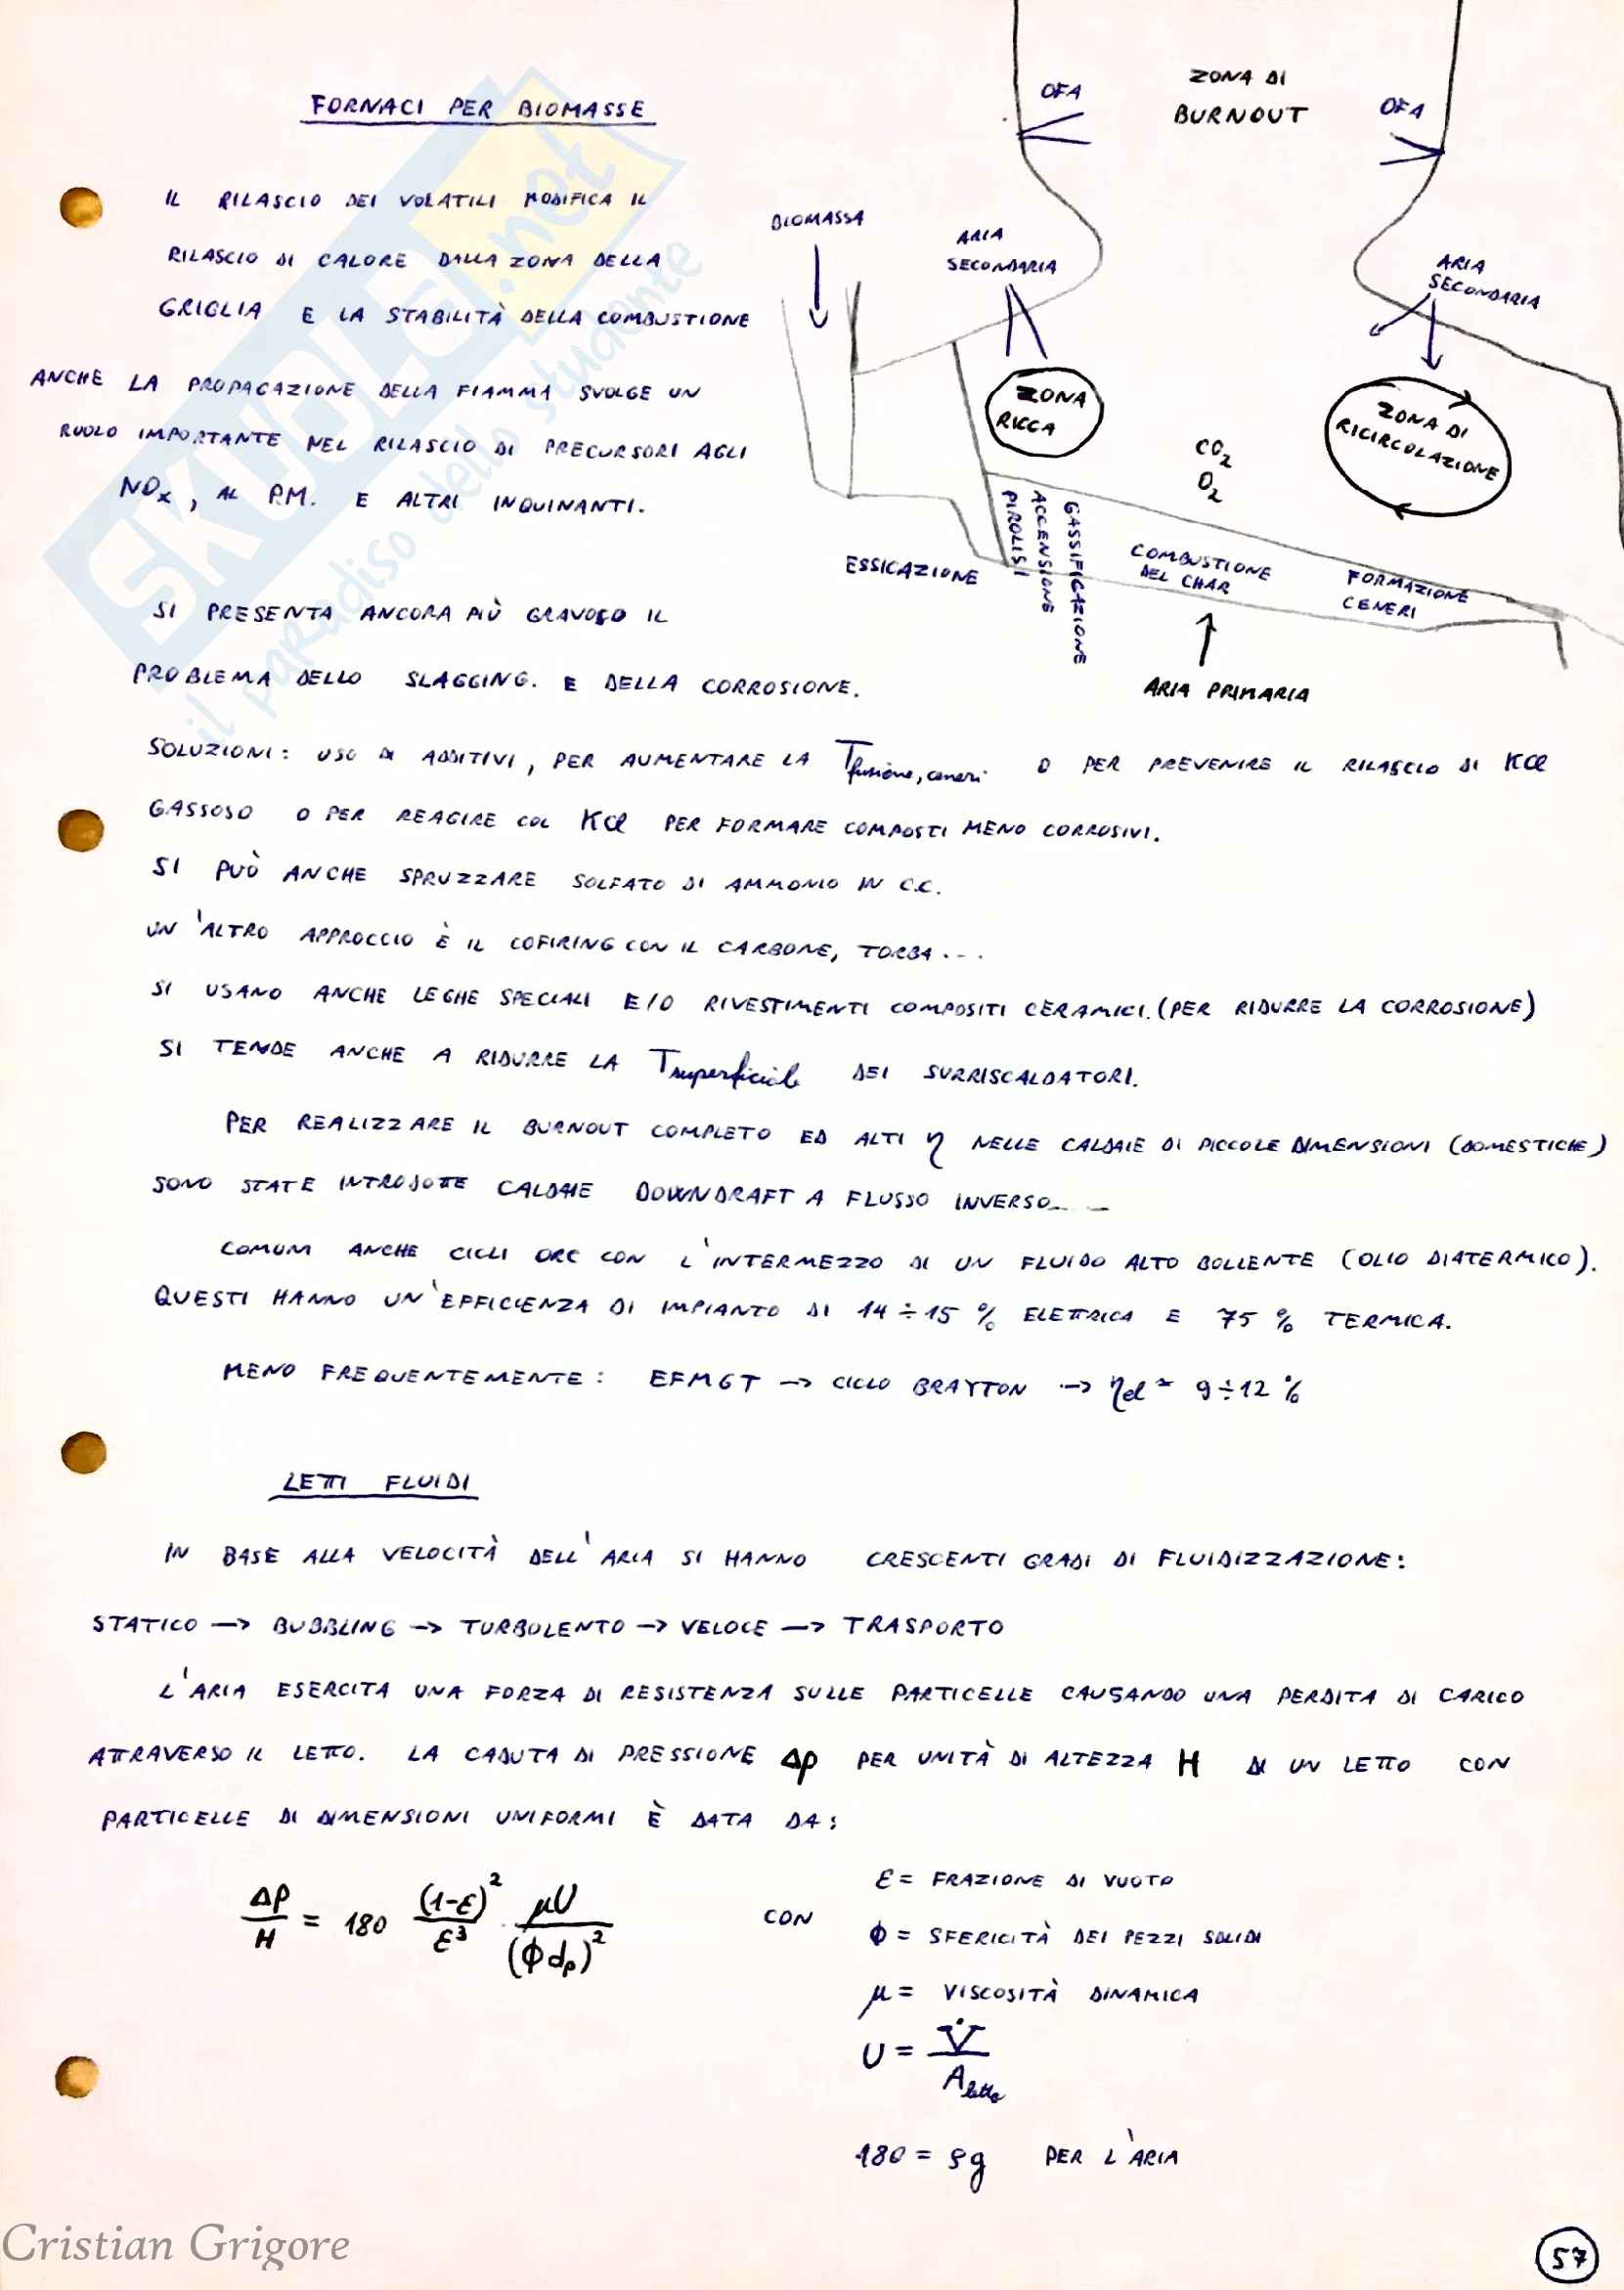 FORNACI PER BIOMASSE
IL RILASCIO DEI VOLATILI MODIFICA IL
RILASCIO DI CALORE DALLA ZONA DELLA
GRIGLIA E LA STABILITÀ DELLA COMBUSTIONE
ANCHE LA PROPAGAZIONE DELLA FIAMMA SVOLGE UN
RUOLO IMPORTANTE NEL RILASCIO DI PRECURSORI AGLI
NOx, AL P.M. E ALTRI INQUINANTI.
SI PRESENTA ANCORA PIÙ GRAVOSO IL
PROBLEMA DELLO SLAGGING. E DELLA CORROSIONE.
ZONA DI
BURNOUT
OFA
OFA
BIOMASSA
ARIA
SECONDARIA
ARIA
SECONDARIA
ZONA
RICCA
ZONA DI
RICIRCOLAZIONE
CO2
O2
ESSICAZIONE
PIROLISI
ACCENSIONE
GASSIFICAZIONE
COMBUSTIONE
DEL CHAR
FORMAZIONE
CENERI
ARIA PRIMARIA
SOLUZIONI: USO DI ADDITIVI, PER AUMENTARE LA Tfusione, ceneri O PER PREVENIRE IL RILASCIO DI KCl
GASSOSO O PER REAGIRE COL KCl PER FORMARE COMPOSTI MENO CORROSIVI.
SI PUÒ ANCHE SPRUZZARE SOLFATO DI AMMONIO IN C.C.
UN'ALTRO APPROCCIO È IL COFIRING CON IL CARBONE, TORBA...
SI USANO ANCHE LEGHE SPECIALI E/O RIVESTIMENTI COMPOSITI CERAMICI. (PER RIDURRE LA CORROSIONE)
SI TENDE ANCHE A RIDURRE LA Tsuperficiale DEI SURRISCALDATORI.
PER REALIZZARE IL BURNOUT COMPLETO ED ALTI η NELLE CALDAIE DI PICCOLE DIMENSIONI (DOMESTICHE)
SONO STATE INTRODOTTE CALDAIE DOWNDRAFT A FLUSSO INVERSO...
COMUNI ANCHE CICLI ORC CON L'INTERMEZZO DI UN FLUIDO ALTO BOLLENTE (OLIO DIATERMICO).
QUESTI HANNO UN'EFFICIENZA DI IMPIANTO DI 14÷15 % ELETTRICA E 75 % TERMICA.
MENO FREQUENTEMENTE: EFMGT → CICLO BRAYTON → ηel ≃ 9÷12 %
LETTI FLUIDI
IN BASE ALLA VELOCITÀ DELL'ARIA SI HANNO CRESCENTI GRADI DI FLUIDIZZAZIONE:
STATICO → BUBBLING → TURBOLENTO → VELOCE → TRASPORTO
L'ARIA ESERCITA UNA FORZA DI RESISTENZA SULLE PARTICELLE CAUSANDO UNA PERDITA DI CARICO
ATTRAVERSO IL LETTO. LA CADUTA DI PRESSIONE Δp PER UNITÀ DI ALTEZZA H DI UN LETTO CON
PARTICELLE DI DIMENSIONI UNIFORMI È DATA DA:
Δp/H = 180 (1-ε)²/ε³ · μU/(ϕdp)²
CON
ε = FRAZIONE DI VUOTO
ϕ = SFERICITÀ DEI PEZZI SOLIDI
μ = VISCOSITÀ DINAMICA
U = V̇/Aletto
180 = ρg PER L'ARIA
SKUOLA.net
il paradiso dello studente
Cristian Grigore
57